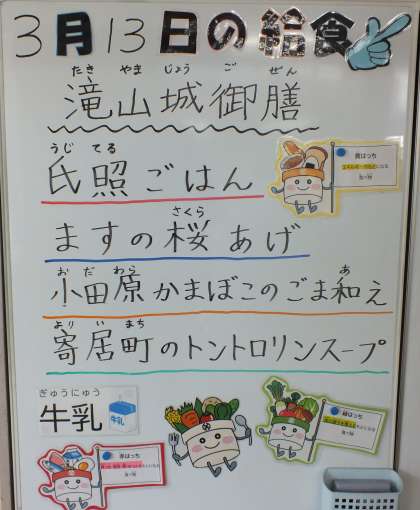 3月13日の給食
たき やま じょう ご ぜん
滝山城御膳
うじ てる
氏照ごはん
さくら
ますの桜あげ
お だ わら あ
小田原かまぼこのごま和え
より い まち
寄居町のトントロリンスープ
ぎゅうにゅう
牛乳
黄はっち
赤はっち
緑はっち